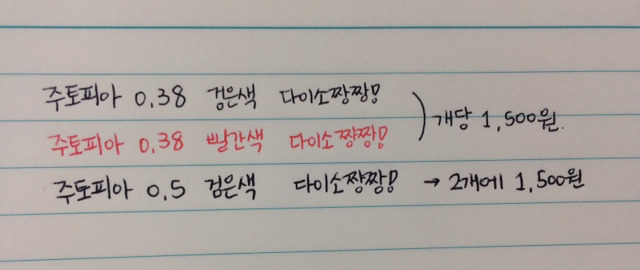 주토피아 0.38 검은색 다이소짱짱!
주토피아 0.38 빨간색 다이소짱짱!
개당 1,500원.
주토피아 0.5 검은색 다이소짱짱! → 2개에 1,500원